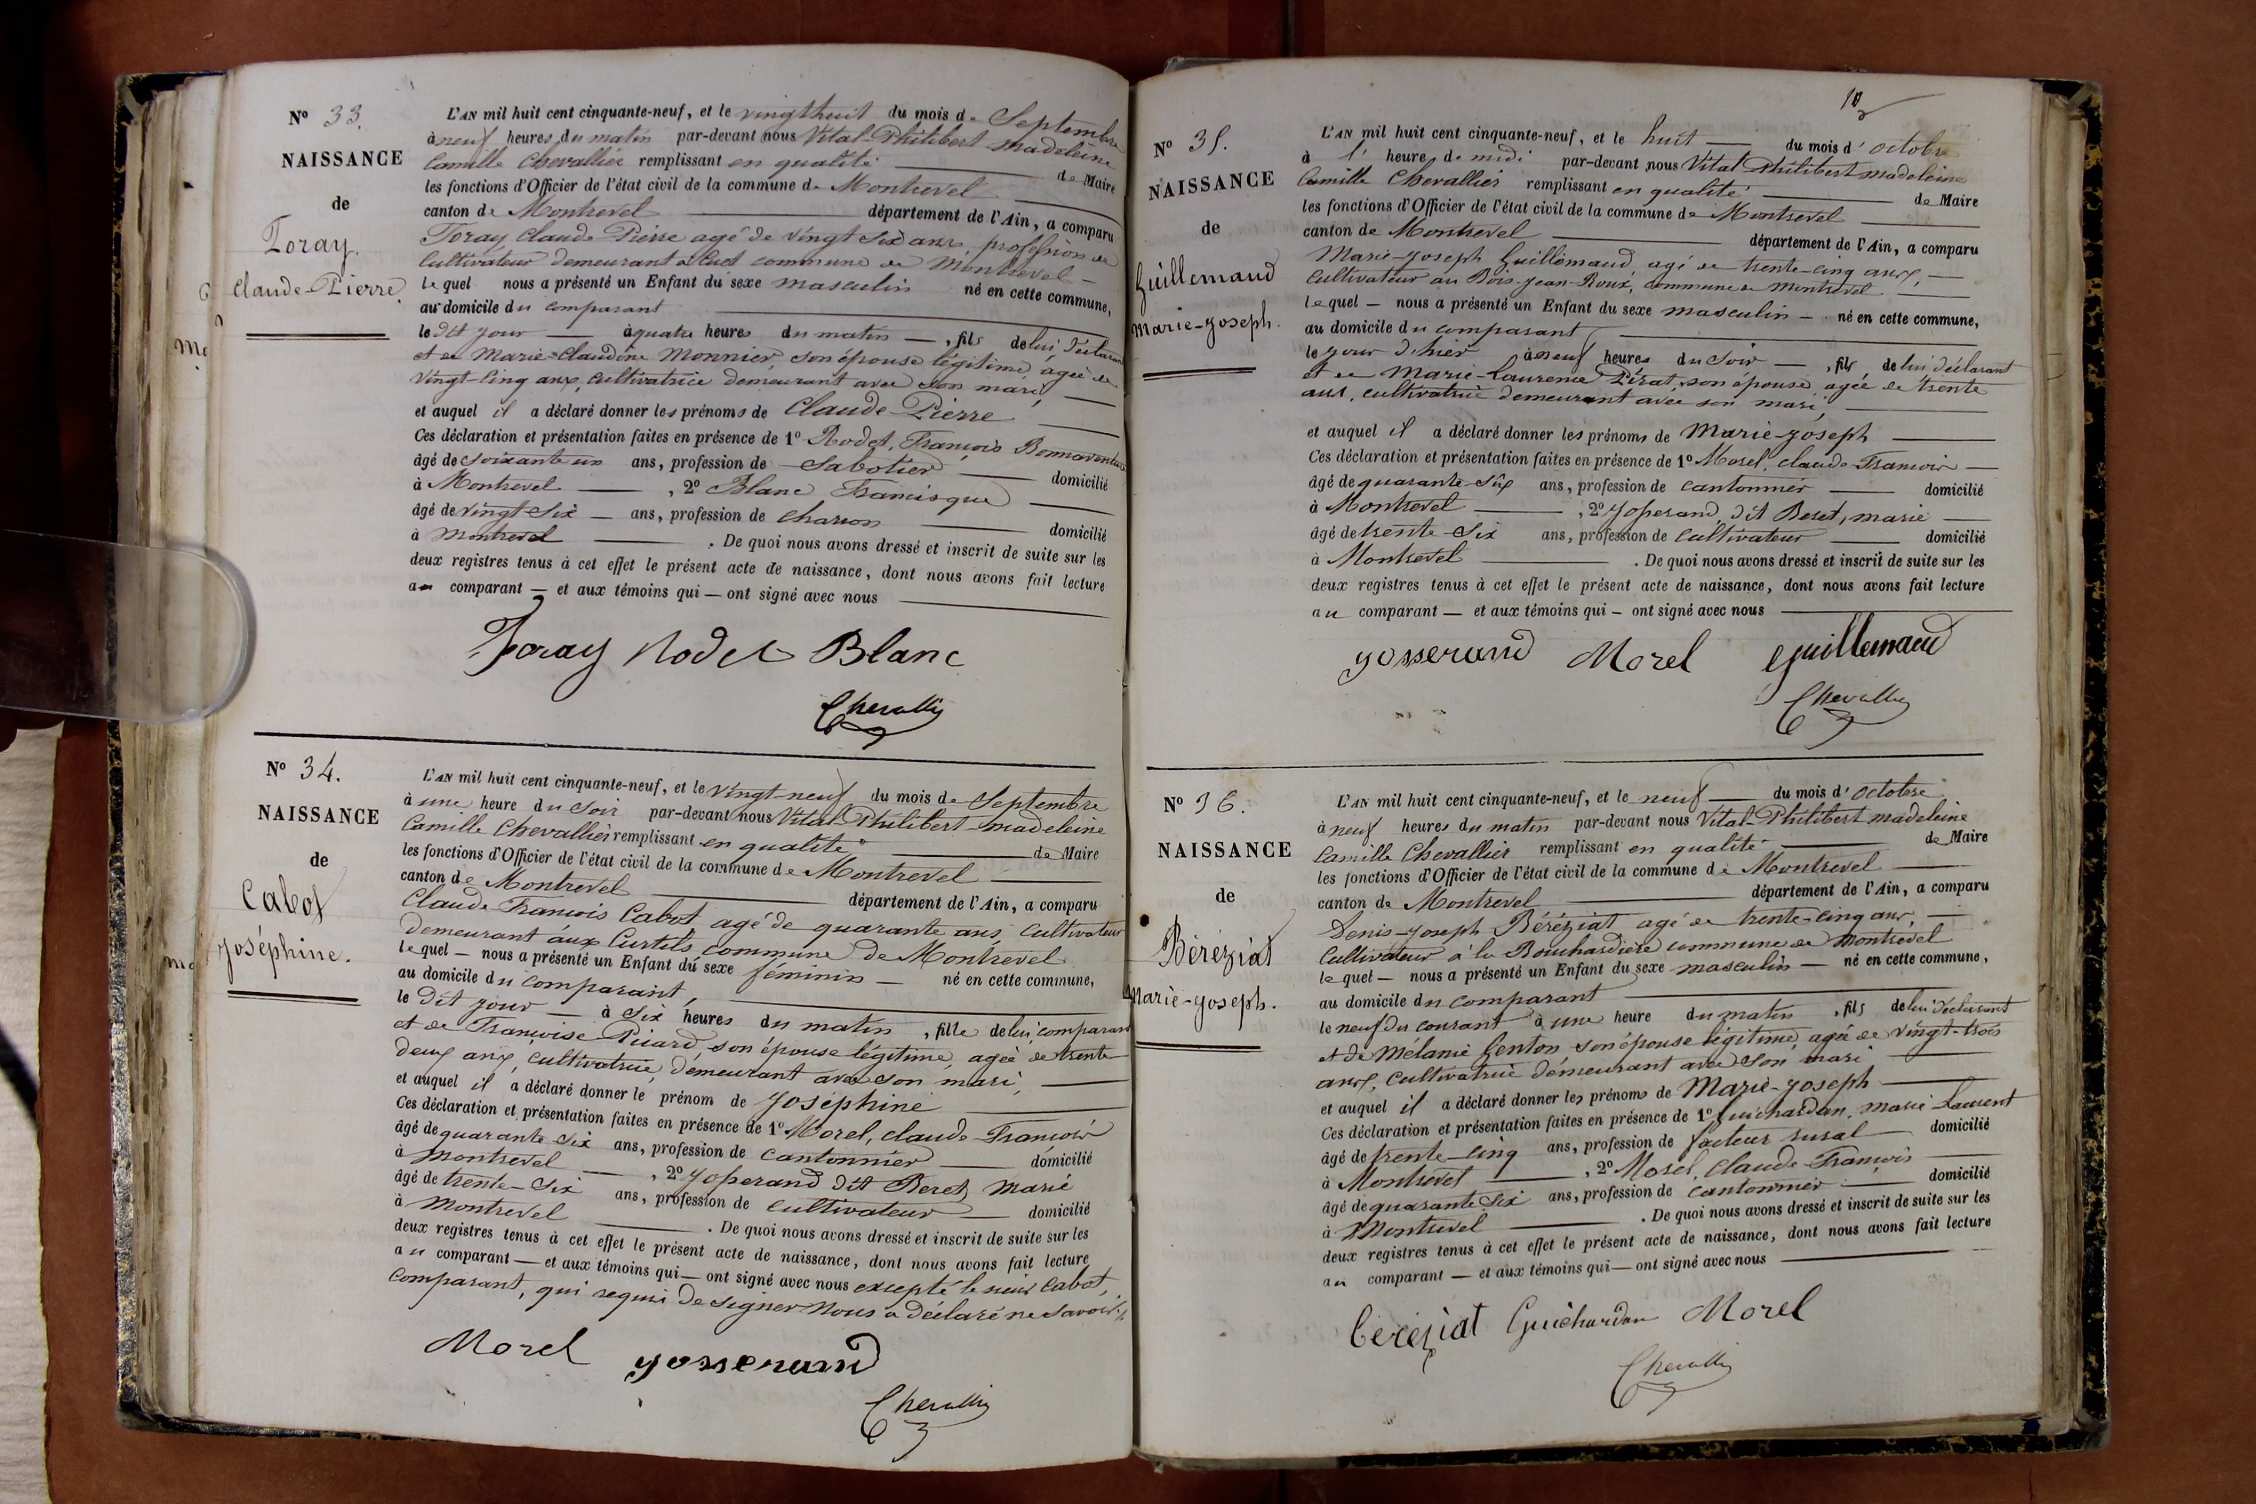 N° 33.
NAISSANCE
de
Foray.
Claude-Pierre.
L'AN mil huit cent cinquante-neuf, et le vingt huit du mois de Septembre
à neuf heures du matin par-devant nous Vital-Philibert-Madeleine
Camille Chevallier remplissant en qualité de Maire
les fonctions d'Officier de l'état civil de la commune de Montrevel
canton de Montrevel département de l'Ain, a comparu
Foray Claude Pierre agé de vingt six ans, profession de
Cultivateur demeurant à commune de Montrevel
lequel nous a présenté un Enfant du sexe masculin né en cette commune,
au domicile du comparant
le dit jour à quatre heures du matin, fils de lui déclarant
et de Marie-Claudine Monnier, son épouse légitime, agée de
vingt-cinq ans, cultivatrice demeurant avec son mari,
et auquel il a déclaré donner les prénoms de Claude-Pierre
Ces déclaration et présentation faites en présence de 1° Rodet, François Bonnaventure
âgé de soixante un ans, profession de Sabotier domicilié
à Montrevel, 2° Blanc Francisque
âgé de vingt six ans, profession de charron domicilié
à Montrevel. De quoi nous avons dressé et inscrit de suite sur les
deux registres tenus à cet effet le présent acte de naissance, dont nous avons fait lecture
au comparant — et aux témoins qui — ont signé avec nous
Foray Rodet Blanc
Chevallier
N° 34.
NAISSANCE
de
Cabot
Joséphine.
L'AN mil huit cent cinquante-neuf, et le vingt-neuf du mois de Septembre
à une heure du soir par-devant nous Vital Philibert-madeleine
Camille Chevallier remplissant en qualité de Maire
les fonctions d'Officier de l'état civil de la commune de Montrevel
canton de Montrevel département de l'Ain, a comparu
Claude François Cabot agé de quarante ans, cultivateur
demeurant aux Curtils commune de Montrevel
lequel — nous a présenté un Enfant du sexe féminin — né en cette commune,
au domicile du comparant,
le dit jour — à six heures du matin, fille de lui, comparant
et de Françoise Picard, son épouse légitime, agée de trente
deux ans, cultivatrice, demeurant avec son mari,
et auquel il a déclaré donner le prénom de Joséphine
Ces déclaration et présentation faites en présence de 1° Morel, claude-François
âgé de quarante six ans, profession de cantonnier domicilié
à Montrevel, 2° Josserand dit Beret, marie
âgé de trente-six ans, profession de cultivateur domicilié
à Montrevel. De quoi nous avons dressé et inscrit de suite sur les
deux registres tenus à cet effet le présent acte de naissance, dont nous avons fait lecture
au comparant — et aux témoins qui — ont signé avec nous excepté le sieur Cabot,
comparant, qui requis de signer nous a déclaré ne savoir
Morel Josserand
Chevallier
10
N° 35.
NAISSANCE
de
Guillemaud
Marie-Joseph.
L'AN mil huit cent cinquante-neuf, et le huit du mois d'octobre
à l' heure de midi par-devant nous Vital Philibert madeleine
Camille Chevallier remplissant en qualité de Maire
les fonctions d'Officier de l'état civil de la commune de Montrevel
canton de Montrevel département de l'Ain, a comparu
Marie-Joseph Guillemaud, agé de trente-cinq ans,
cultivateur au Bois-Jean-Roux, commune de Montrevel
lequel — nous a présenté un Enfant du sexe masculin — né en cette commune,
au domicile du comparant
le jour d'hier à neuf heures du soir —, fils de lui déclarant
et de Marie-Laurence Pérat, son épouse agée de trente
ans, cultivatrice demeurant avec son mari,
et auquel il a déclaré donner les prénoms de Marie-Joseph
Ces déclaration et présentation faites en présence de 1° Morel, claude-François
âgé de quarante-six ans, profession de cantonnier domicilié
à Montrevel, 2° Josserand, dit Beret, marie
âgé de trente six ans, profession de cultivateur domicilié
à Montrevel. De quoi nous avons dressé et inscrit de suite sur les
deux registres tenus à cet effet le présent acte de naissance, dont nous avons fait lecture
au comparant — et aux témoins qui — ont signé avec nous
Josserand Morel Guillemaud
Chevallier
N° 36.
NAISSANCE
de
Béréziat
Marie-Joseph.
L'AN mil huit cent cinquante-neuf, et le neuf du mois d'octobre
à neuf heures du matin par-devant nous Vital-Philibert madeleine
Camille Chevallier remplissant en qualité de Maire
les fonctions d'Officier de l'état civil de la commune de Montrevel
canton de Montrevel département de l'Ain, a comparu
Denis-Joseph Béréziat agé de trente-cinq ans,
cultivateur à la Bouchardière commune de Montrevel
lequel — nous a présenté un Enfant du sexe masculin — né en cette commune,
au domicile du comparant
le neuf du courant à une heure du matin, fils de lui déclarant
et de Mélanie Genton son épouse légitime, agée de vingt-trois
ans, cultivatrice demeurant avec son mari
et auquel il a déclaré donner les prénoms de Marie-Joseph
Ces déclaration et présentation faites en présence de 1° Guichardan, marie-Laurent
âgé de trente-cinq ans, profession de facteur rural domicilié
à Montrevel, 2° Morel, Claude-François
âgé de quarante six ans, profession de cantonnier domicilié
à Montrevel. De quoi nous avons dressé et inscrit de suite sur les
deux registres tenus à cet effet le présent acte de naissance, dont nous avons fait lecture
au comparant — et aux témoins qui — ont signé avec nous
Béréziat Guichardan Morel
Chevallier